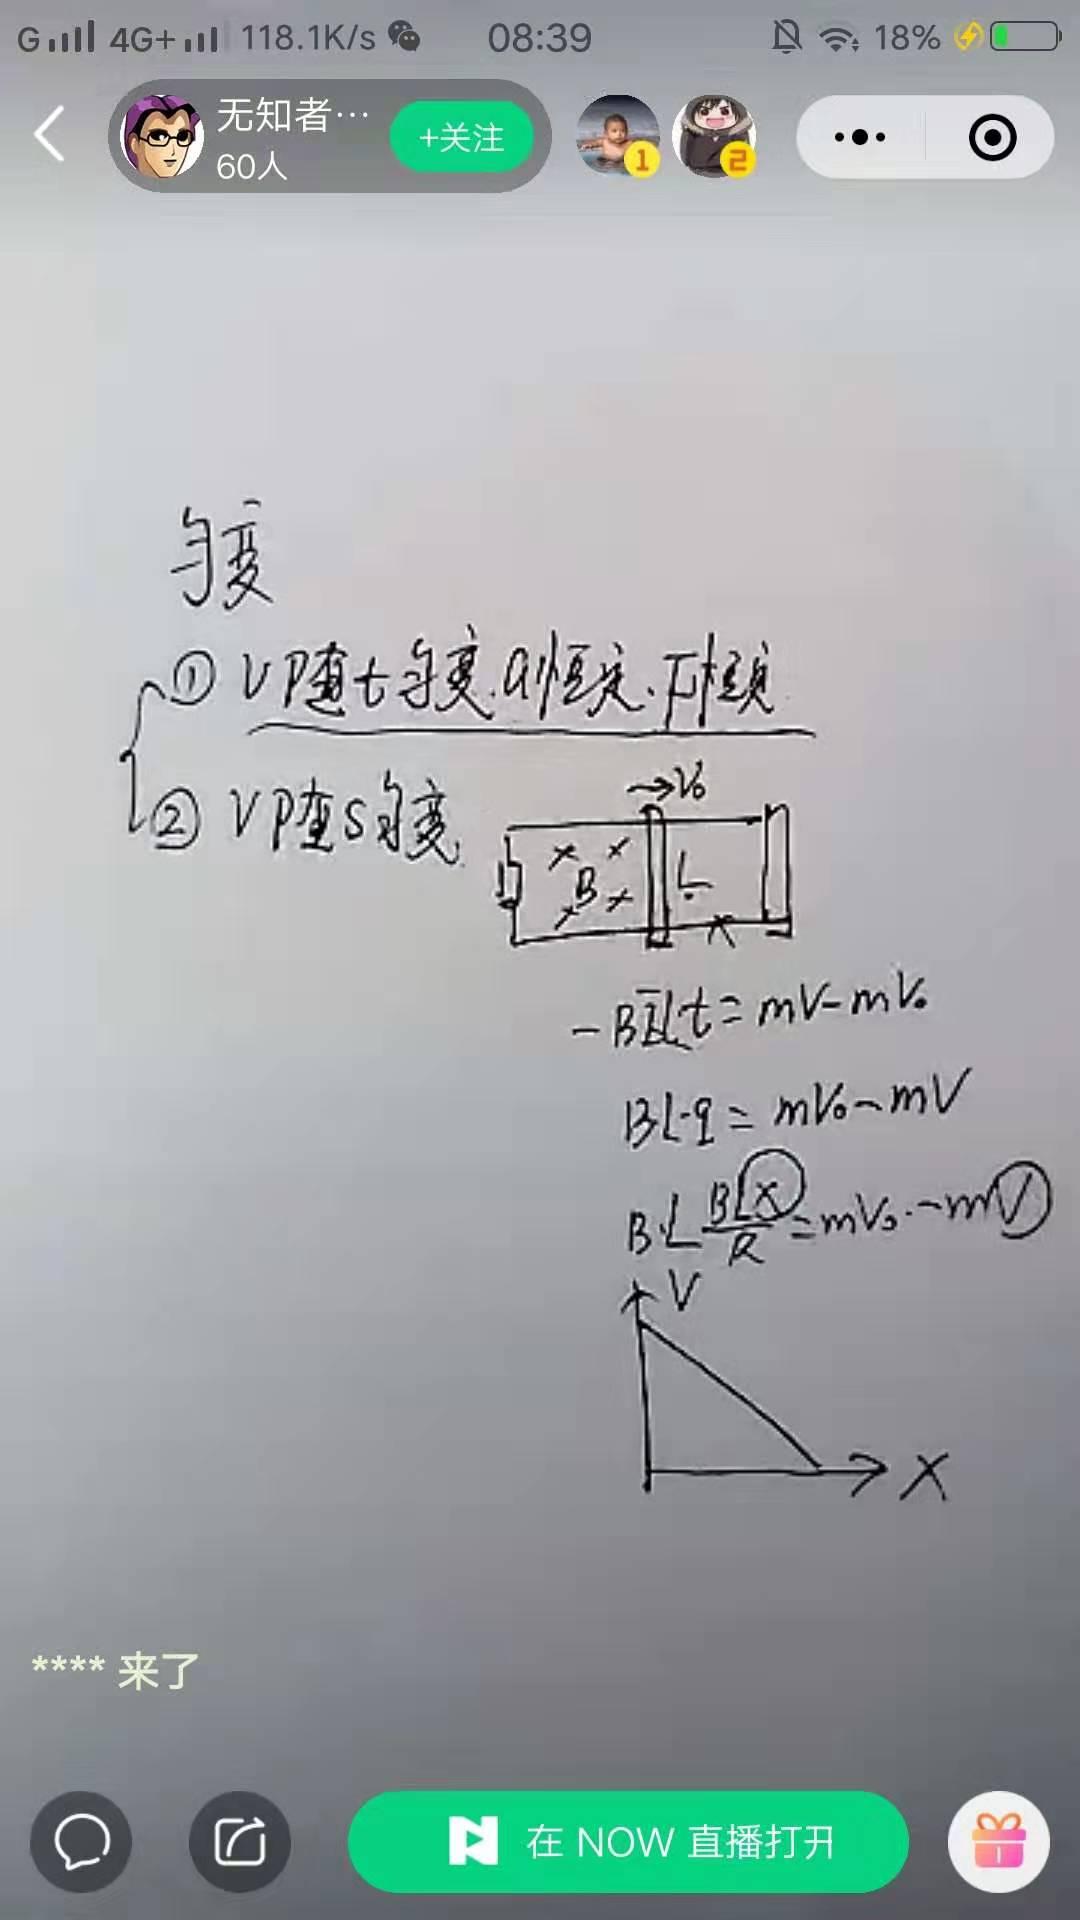 G 4G+ 118.1K/s 08:39 18%
无知者… +关注
60人
1 2
匀变
① V随t匀变.a恒定、F恒定
② V随S匀变
→V₀
B L
x
-BĪLt=mV-mV₀
BL·q=mV₀-mV
B·L BLX/R=mV₀.-mV
V
X
**** 来了
在 NOW 直播打开